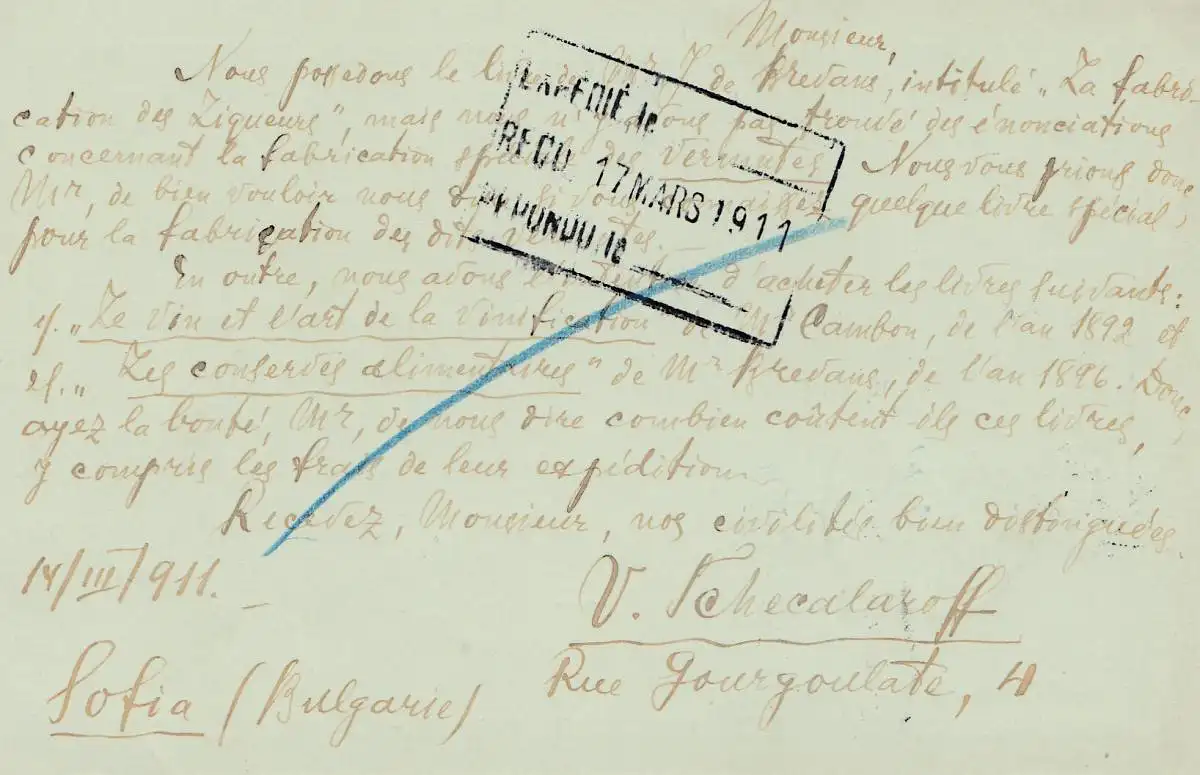 Monsieur,
Nous possedons le livre de Mr J. de Brevans, intitulé „La fabri-
cation des Liqueurs", mais nous n'y avons pas trouvé des énonciations
concernant la fabrication spéciale des vermutes. Nous vous prions donc
Mr, de bien vouloir nous si vous quelque livre spécial,
pour la fabrication des dits vermutes. —
En outre, nous avons d'acheter les livres suivants:
1). „Le vin et l'art de la vinification" de Mr Cambon, de l'an 1892 et
2). „Les conserves alimentaires" de Mr Brevans, de l'an 1896. Donc,
ayez la bonté, Mr, de nous dire combien coûtent ils ces livres,
y compris les frais de leur expédition.
Recevez, Monsieur, nos civilités bien distinguées.
14/III/911. —
V. Tchecalaroff
Rue Gourgoulate, 4
Sofia (Bulgarie)
EXPÉDIÉ le
REÇU 17 MARS 1911
RÉPONDU le